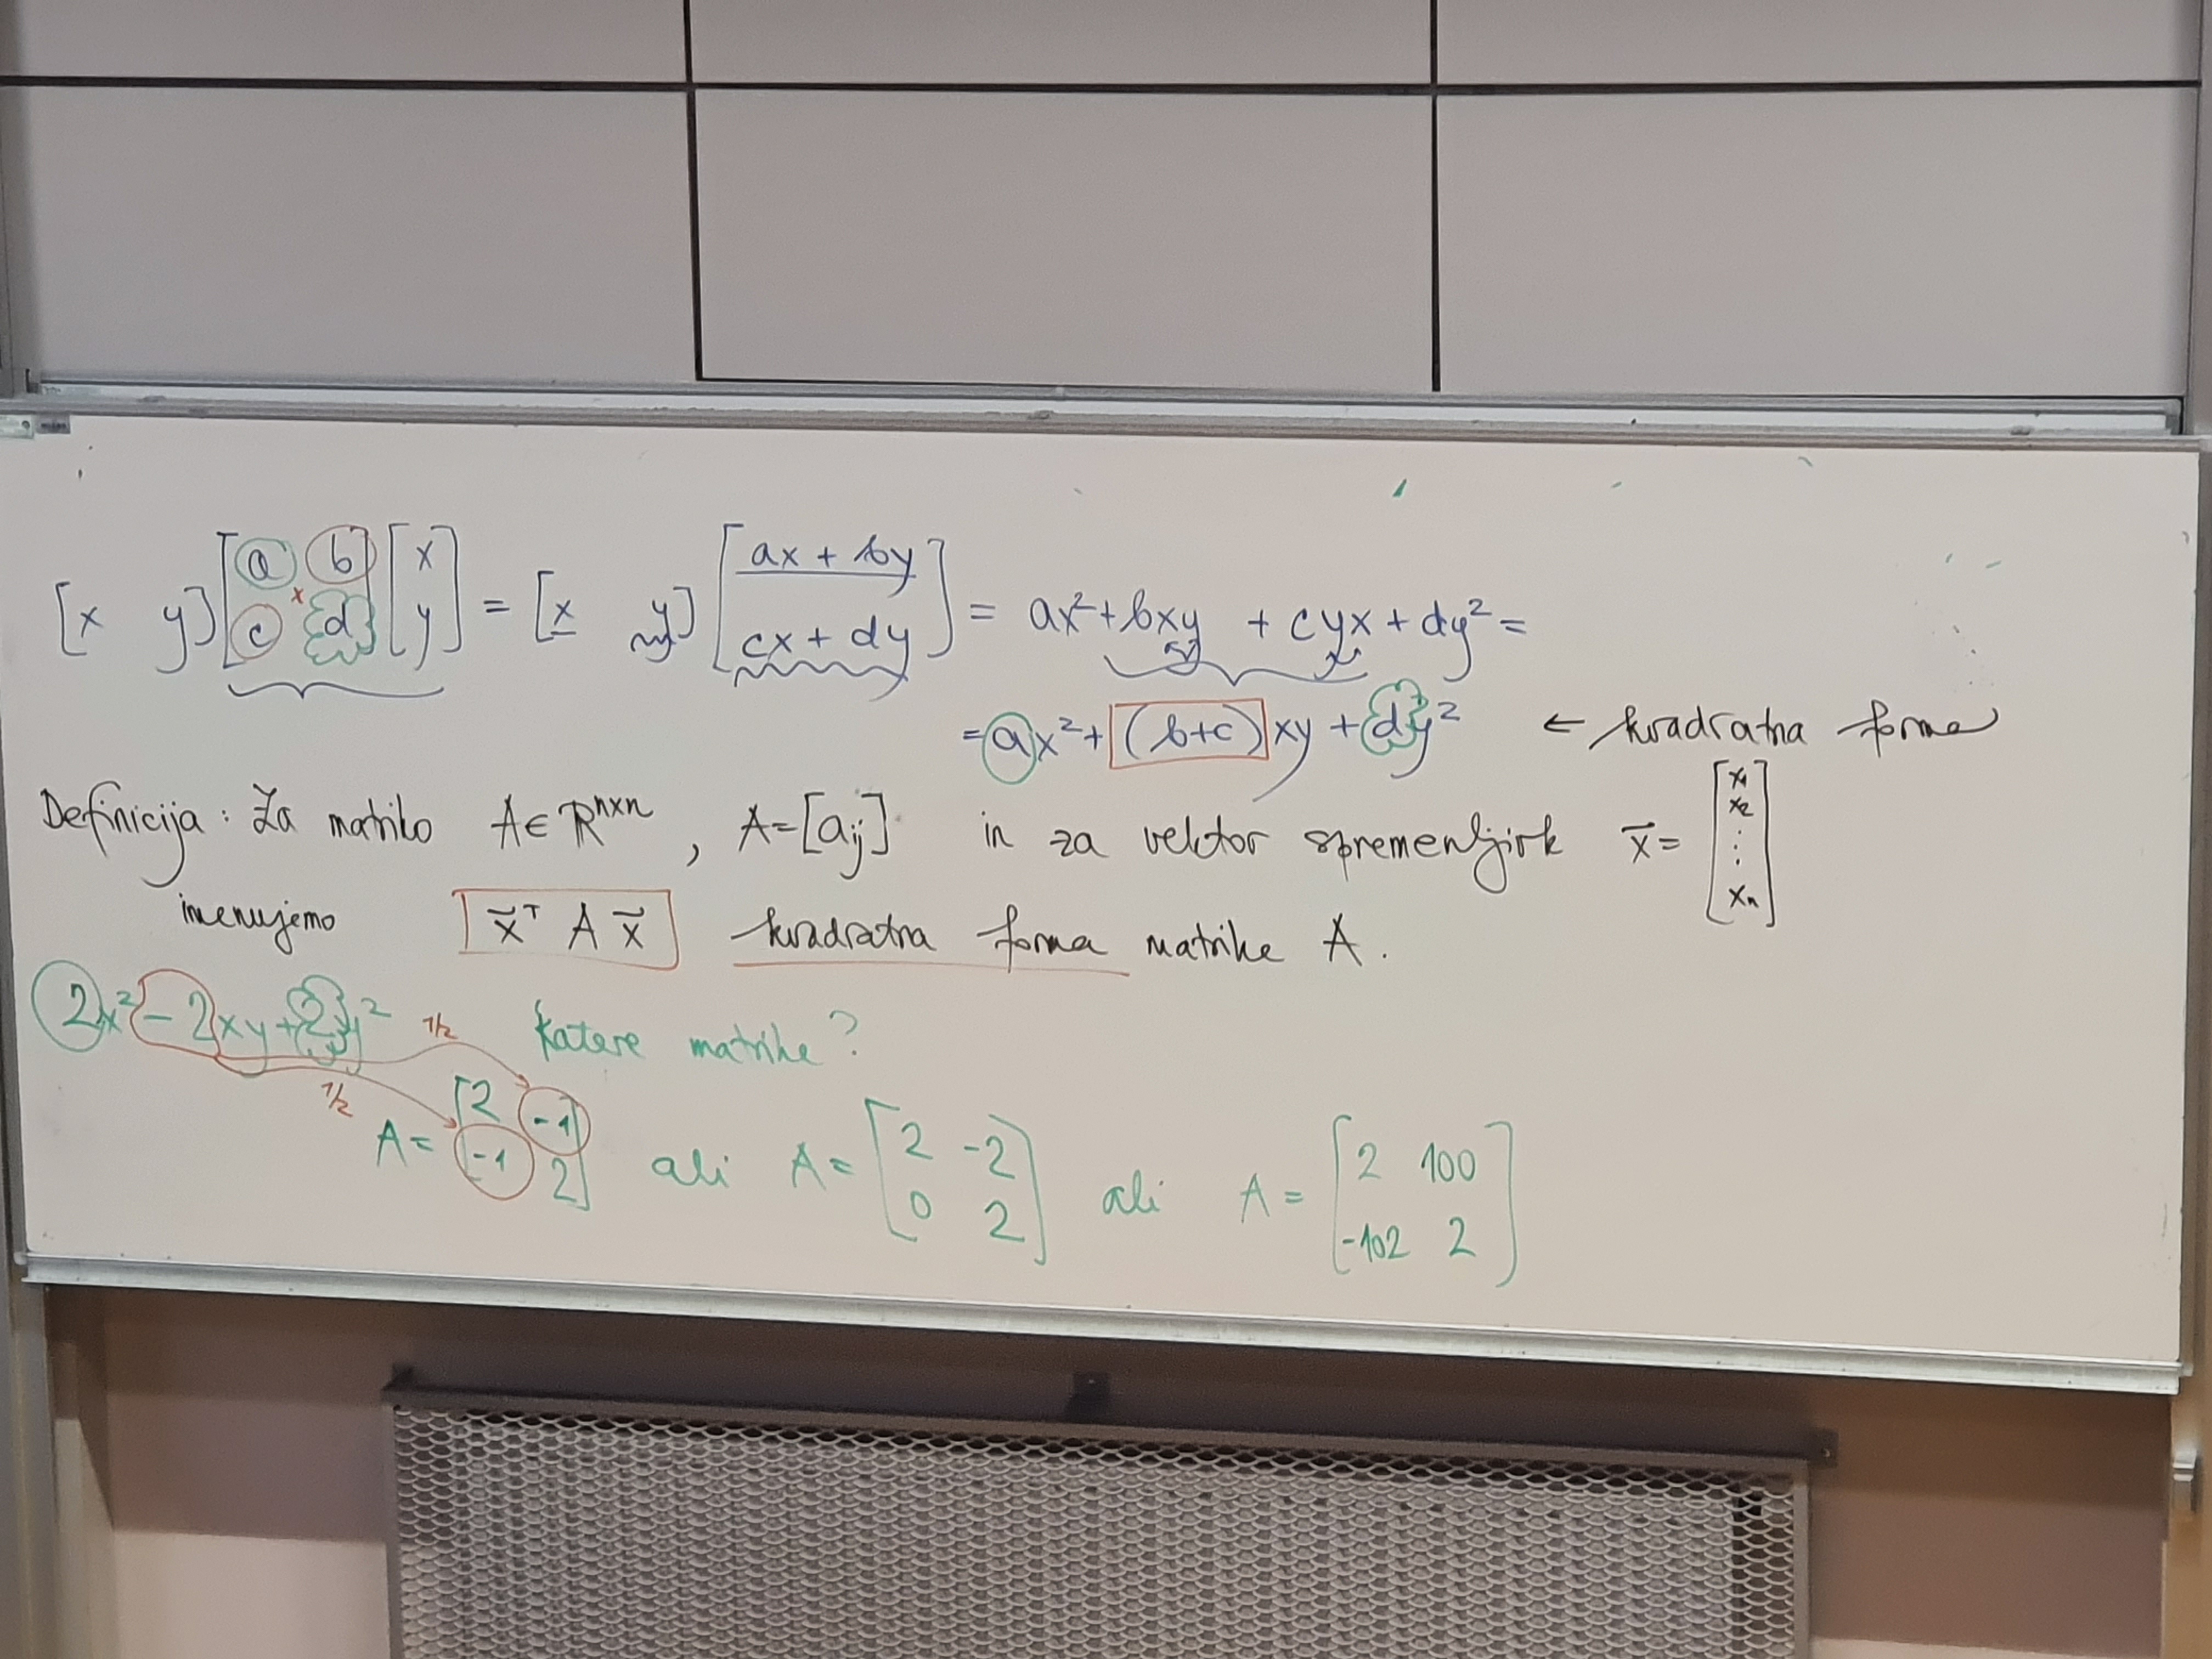 [x y] [a b; c d] [x; y] = [x y] [ax + by; cx + dy] = ax² + bxy + cyx + dy² =
= ax² + (b+c) xy + dy² ← kvadratna forma
Definicija: Za matriko A ∈ ℝⁿˣⁿ, A = [aᵢⱼ] in za vektor spremenljivk x⃗ = [x₁; x₂; ⋮; xₙ]
imenujemo x⃗ᵀ A x⃗ kvadratna forma matrike A.
2x² - 2xy + 2y² 1/2 Katere matrike?
1/2
A = [2 -1; -1 2] ali A = [2 -2; 0 2] ali A = [2 100; -102 2]